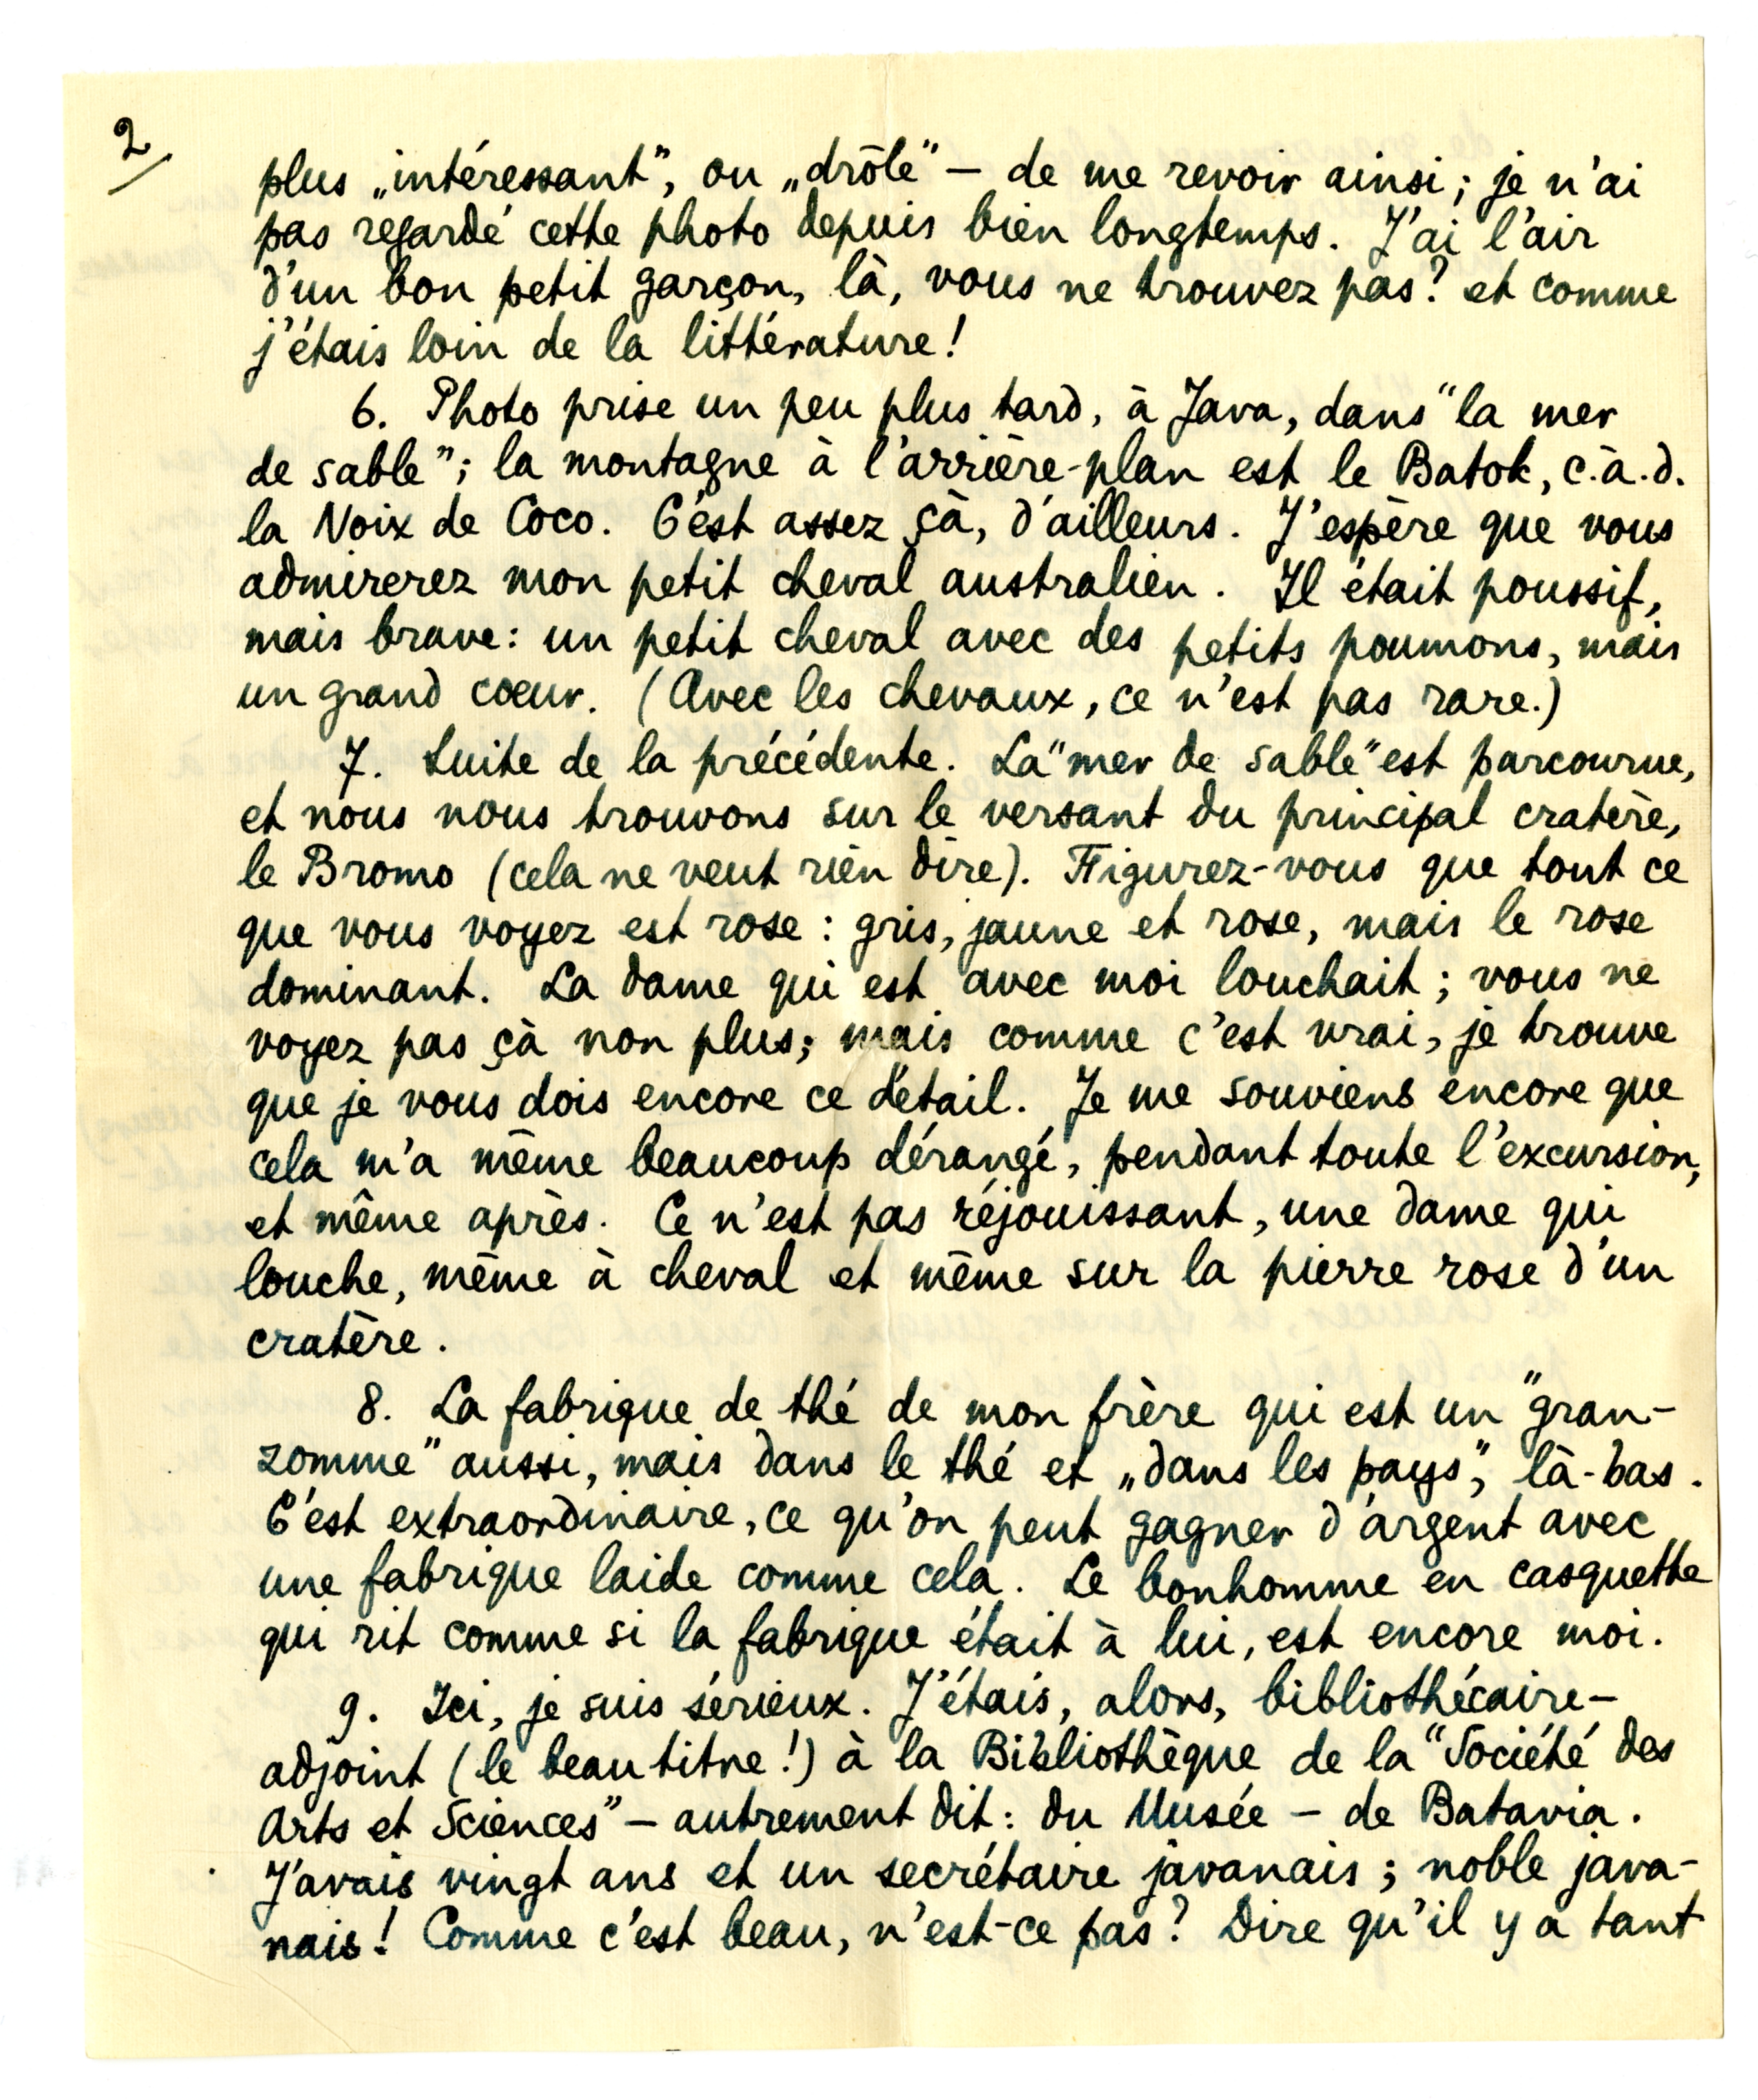 2/
plus „intéressant”, ou „drôle” — de me revoir ainsi; je n'ai
pas regardé cette photo depuis bien longtemps. J'ai l'air
d'un bon petit garçon, là, vous ne trouvez pas? et comme
j'étais loin de la littérature!
6. Photo prise un peu plus tard, à Java, dans "la mer
de sable"; la montagne à l'arrière-plan est le Batok, c.à.d.
la Noix de Coco. C'est assez çà, d'ailleurs. J'espère que vous
admirerez mon petit cheval australien. Il était poussif,
mais brave: un petit cheval avec des petits poumons, mais
un grand coeur. (Avec les chevaux, ce n'est pas rare.)
7. Suite de la précédente. La "mer de sable" est parcourue,
et nous nous trouvons sur le versant du principal cratère,
le Bromo (cela ne veut rien dire). Figurez-vous que tout ce
que vous voyez est rose: gris, jaune et rose, mais le rose
dominant. La dame qui est avec moi louchait; vous ne
voyez pas çà non plus; mais comme c'est vrai, je trouve
que je vous dois encore ce détail. Je me souviens encore que
cela m'a même beaucoup dérangé, pendant toute l'excursion,
et même après. Ce n'est pas réjouissant, une dame qui
louche, même à cheval et même sur la pierre rose d'un
cratère.
8. La fabrique de thé de mon frère qui est un "gran-
zomme" aussi, mais dans le thé et „dans les pays”, là-bas.
C'est extraordinaire, ce qu'on peut gagner d'argent avec
une fabrique laide comme cela. Le bonhomme en casquette
qui rit comme si la fabrique était à lui, est encore moi.
9. Ici, je suis sérieux. J'étais, alors, bibliothécaire-
adjoint (le beau titre!) à la Bibliothèque de la "Société des
Arts et Sciences" — autrement dit: du Musée — de Batavia.
J'avais vingt ans et un secrétaire javanais; noble java-
nais! Comme c'est beau, n'est-ce pas? Dire qu'il y a tant